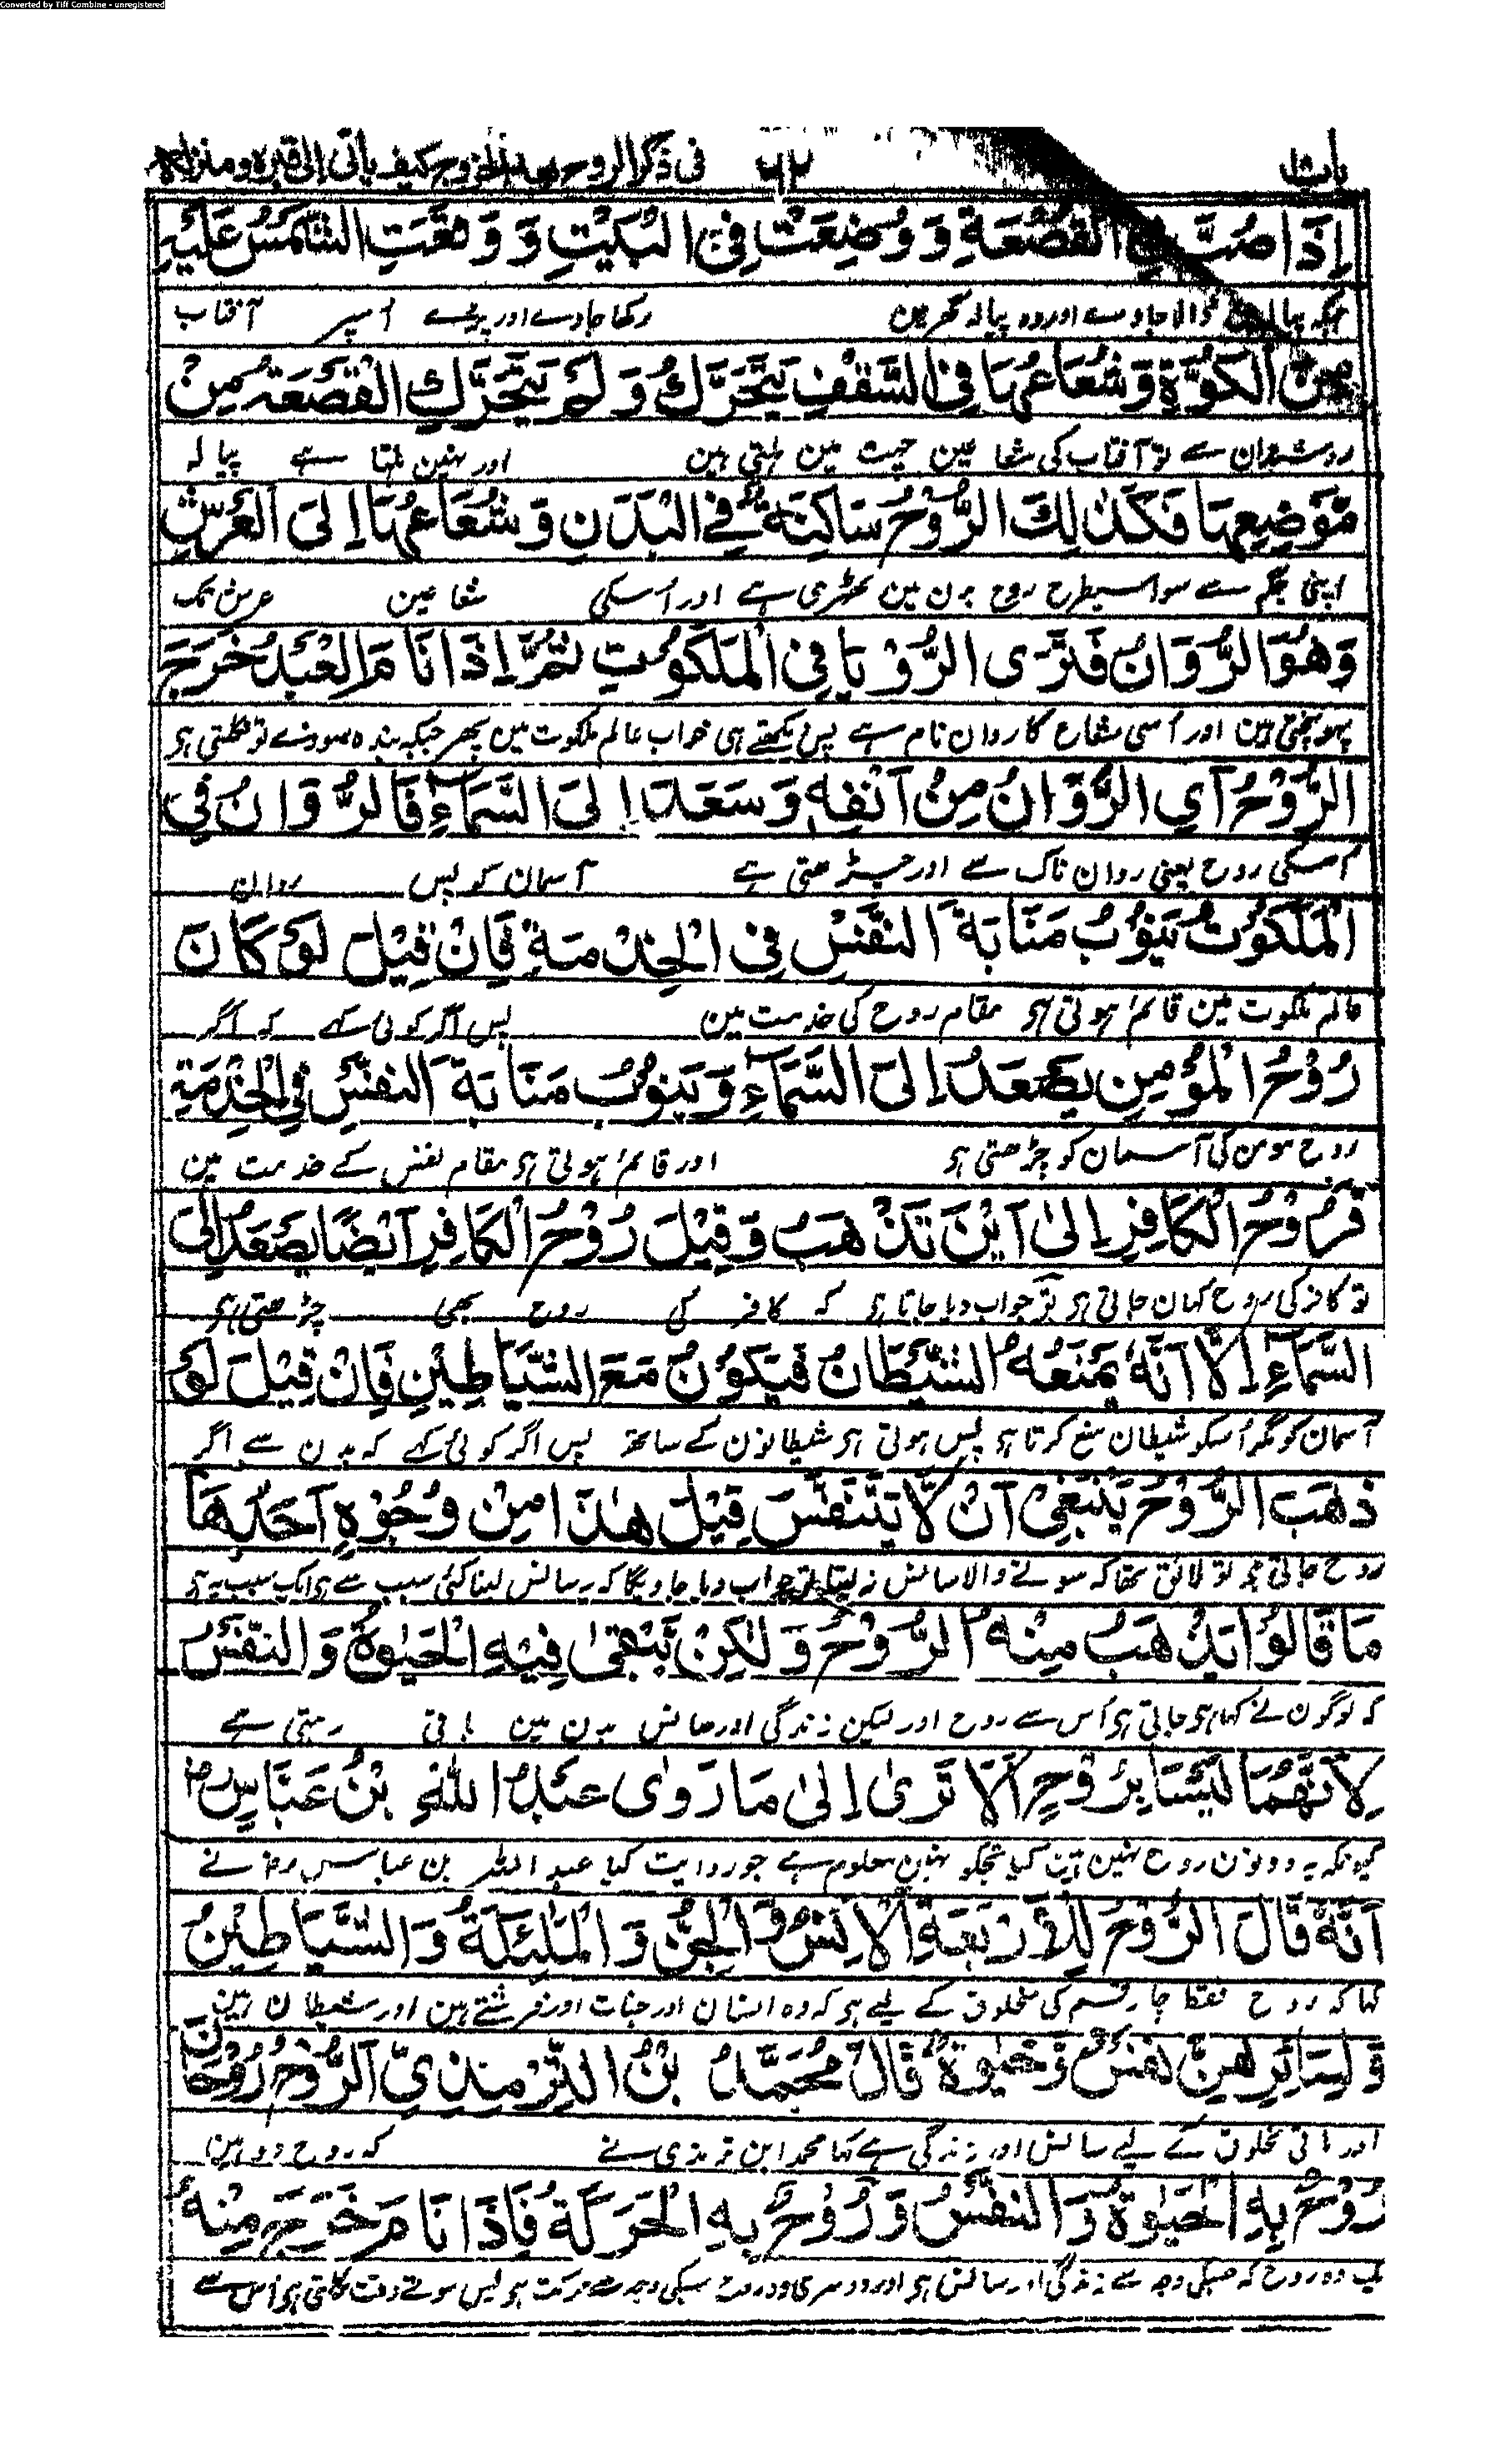 Converted by Tiff Combine - unregistered
فی ذکر الروح بعد الخروج کیف یاتی الی قبرہ و منزلہ
۶۲
اِذَا صُبَّ فِی الْقَصْعَةِ وَ وُضِعَتْ فِی الْبَیْتِ وَ وَقَعَتِ الشَّمْسُ عَلَیْهِ
جبکہ پیالہ ڈالا جاوے اور وہ پیالہ گھر مین رکھا جاوے اور پڑے اُسپر آفتاب
مِنَ الْکُوَّةِ وَ شُعَاعُهَا فِی السَّقْفِ یَتَحَرَّكُ وَ لَمْ یَتَحَرَّكِ الْقَصْعَةُ مِنْ
روشندان سے تو آفتاب کی شعاعین چھت مین ہلتی ہین اور نہین ہلتا ہے پیالہ
مَوْضِعِهَا فَکَذٰلِكَ الرُّوْحُ سَاکِنَةٌ فِی الْبَدَنِ وَ شُعَاعُهَا اِلَی الْعَرْشِ
اپنی جگہ سے سو اسیطرح روح بدن مین ٹھہری ہے اور اُسکی شعاعین عرش تک
وَ هُوَ الرُّوَانُ فَتَرَی الرُّؤْیَا فِی الْمَلَکُوْتِ ثُمَّ اِذَا نَامَ الْعَبْدُ خَرَجَ
پہونچتی ہین اور اُسی شعاع کا روان نام ہے پس دیکھتے ہی خواب عالم ملکوت مین پھر جبکہ بندہ سووے تو نکلتی ہی
الرُّوْحُ اَیِ الرُّوَانُ مِنْ اَنْفِهٖ وَ سَعَدَ اِلَی السَّمَآءِ فَالرُّوَانُ فِی
اُسکی روح یعنی روان ناک سے اور چڑھتی ہے آسمان کو پس روان
الْمَلَکُوْتُ یَنُوْبُ مَنَابَةَ النَّفْسِ فِی الْخِدْمَةِ فَاِنْ قِیْلَ لَوْ کَانَ
عالم ملکوت مین قائم ہوتی ہی مقام روح کی خدمت مین پس اگر کوئی کہے کہ اگر
رُوْحُ الْمُؤْمِنِ یَصْعَدُ اِلَی السَّمَآءِ وَ یَنُوْبُ مَنَابَةَ النَّفْسِ فِی الْخِدْمَةِ
روح مومن کی آسمان کو چڑھتی ہی اور قائم ہوتی ہی مقام نفس کے خدمت مین
فَرُوْحُ الْکَافِرِ اِلٰی اَیْنَ تَذْهَبُ وَ قِیْلَ رُوْحُ الْکَافِرِ اَیْضًا یَصْعَدُ اِلَی
تو کافر کی روح کہان جاتی ہی تو جواب دیا جاتا ہی کہ کافر کی روح بھی چڑھتی ہی
السَّمَآءِ اِلَّا اَنَّهٗ یَمْنَعُهُ الشَّیْطَانُ فَیَکُوْنُ مَعَ الشَّیَاطِیْنِ فَاِنْ قِیْلَ لَوْ
آسمان کو مگر اُسکو شیطان منع کرتا ہی پس ہوتی ہی شیطانون کے ساتھ پس اگر کوئی کہے کہ بدن سے اگر
ذَهَبَ الرُّوْحُ یَنْبَغِیْ اَنْ لَّا یَتَنَفَّسَ قِیْلَ هٰذَا مِنْ وُجُوْهٍ اَحَدُهَا
روح جاتی ہی تو لائق تھا کہ سونے والا سانس نہ لیتا تو جواب دیا جاویگا کہ یہ سانس لینا کئی سبب سے ہی ایک سبب یہ ہی
مَا قَالُوْا یَذْهَبُ مِنْهُ الرُّوْحُ وَ لٰکِنْ یَبْقٰی فِیْهِ الْحَیٰوةُ وَ النَّفَسُ
کہ لوگون نے کہا ہی جاتی ہی اُس سے روح اور لیکن زندگی اور سانس بدن مین باقی رہتی ہے
لِاَنَّهُمَا لَیْسَا بِرُوْحٍ اَلَا تَرٰی اِلٰی مَا رَوٰی عَبْدُ اللّٰهِ بْنُ عَبَّاسٍ رض
کیونکہ یہ دونون روح نہین ہین کیا تجکو نہین معلوم ہے جو روایت کیا عبد اللہ بن عباس رض نے
اَنَّهٗ قَالَ الرُّوْحُ لِلْاَرْبَعَةِ الْاِنْسُ وَ الْجِنُّ وَ الْمَلٰئِکَةُ وَ الشَّیَاطِیْنُ
کہا کہ روح فقط چار قسم کی مخلوق کے لیے ہی کہ وہ انسان اور جنات اور فرشتے ہین اور شیطان ہین
وَ لِسَائِرِهِنَّ نَفْسٌ وَ حَیٰوةٌ قَالَ مُحَمَّدُ بْنُ التِّرْمِذِیِّ اَلرُّوْحُ رُوْحَانِ
اور باقی مخلوق کے لیے سانس اور زندگی ہے کہا محمد ابن ترمذی نے کہ روح دو ہین
رُوْحٌ بِهِ الْحَیٰوةُ وَ النَّفَسُ وَ رُوْحٌ بِهِ الْحَرَکَةُ فَاِذَا نَامَ خَرَجَ مِنْهُ
ایک وہ روح کہ جسکی وجہ سے زندگی اور سانس ہی اور دوسری وہ روح جسکی وجہ سے حرکت ہی پس سوتے وقت نکلتی ہی اُس سے